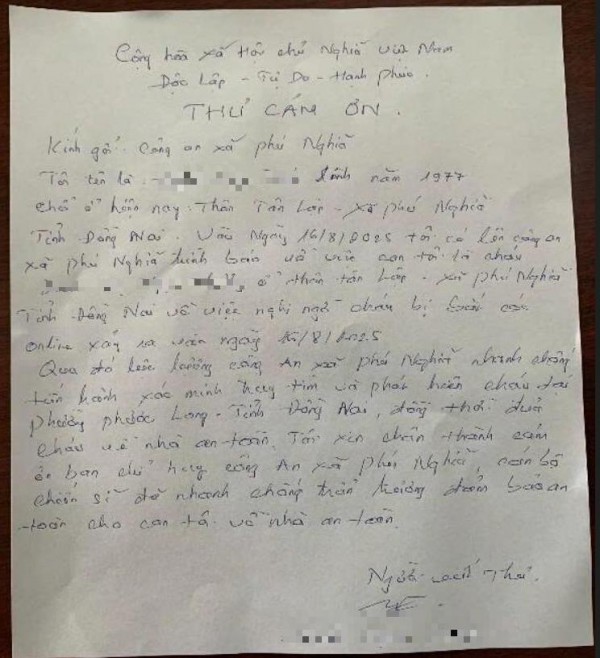 Cộng hòa xã Hội chủ Nghĩa việt Nam
Độc Lập - Tự Do - Hạnh phúc.
THƯ CẢM ƠN.
Kính gởi: Công an xã phú Nghĩa
Tôi tên là: Sinh năm 1977
chỗ ở hiện nay: Thôn Tân Lập - xã phú Nghĩa
Tỉnh Đồng Nai. Vào Ngày 16/8/2025 tôi có lên công an
xã phú Nghĩa trình báo về việc con tôi là cháu
ở thôn tân Lập - xã phú Nghĩa
Tỉnh Đồng Nai về việc nghi ngờ cháu bị bắt cóc
online xảy ra vào ngày 16/8/2025
Qua đó lực lượng công An xã phú Nghĩa nhanh chóng
tiến hành xác minh truy tìm và phát hiện cháu tại
phường phước Long - Tỉnh Đồng Nai, đồng thời đưa
cháu về nhà an toàn. Tôi xin chân thành cảm
ơn ban chỉ huy công An xã phú Nghĩa, cán bộ
chiến sĩ đã nhanh chóng khẩn trương đảm bảo an
toàn cho con tôi về nhà an toàn.
Người viết Thư.